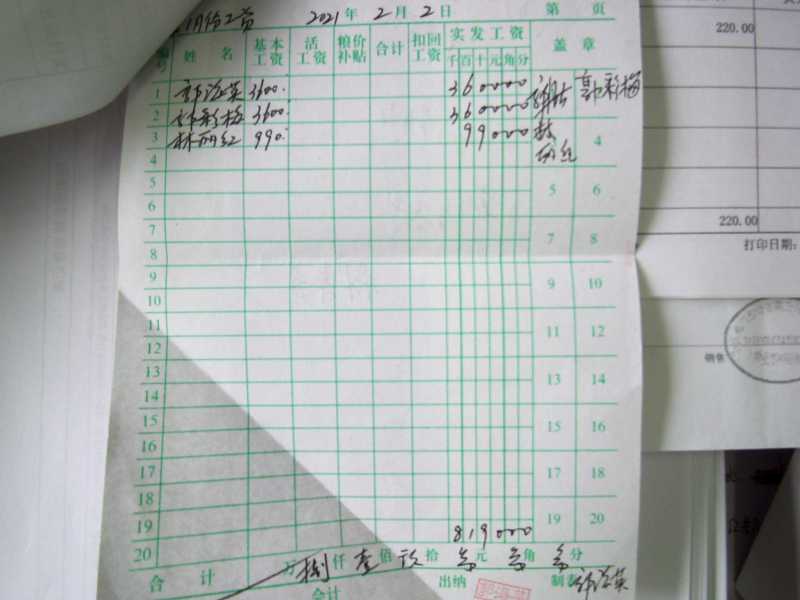 月份工资 2021年2月2日 第 页
编号 姓名 基本工资 活工资 粮价补贴 合计 扣回工资 实发工资 千百十元角分 盖章
1 3600. 360000 郭彩梅
2 郭彩梅 3600. 360000
3 林丽红 990. 99000 林
4 4
5 5 6
6
7 7 8
8
9 9 10
10
11 11 12
12
13 13 14
14
15 15 16
16
17 17 18
18
19 819000 19 20
20
合计 万捌仟壹佰玖拾零元零角零分
会计 出纳 制表
220.00
220.00
打印日期:
销售